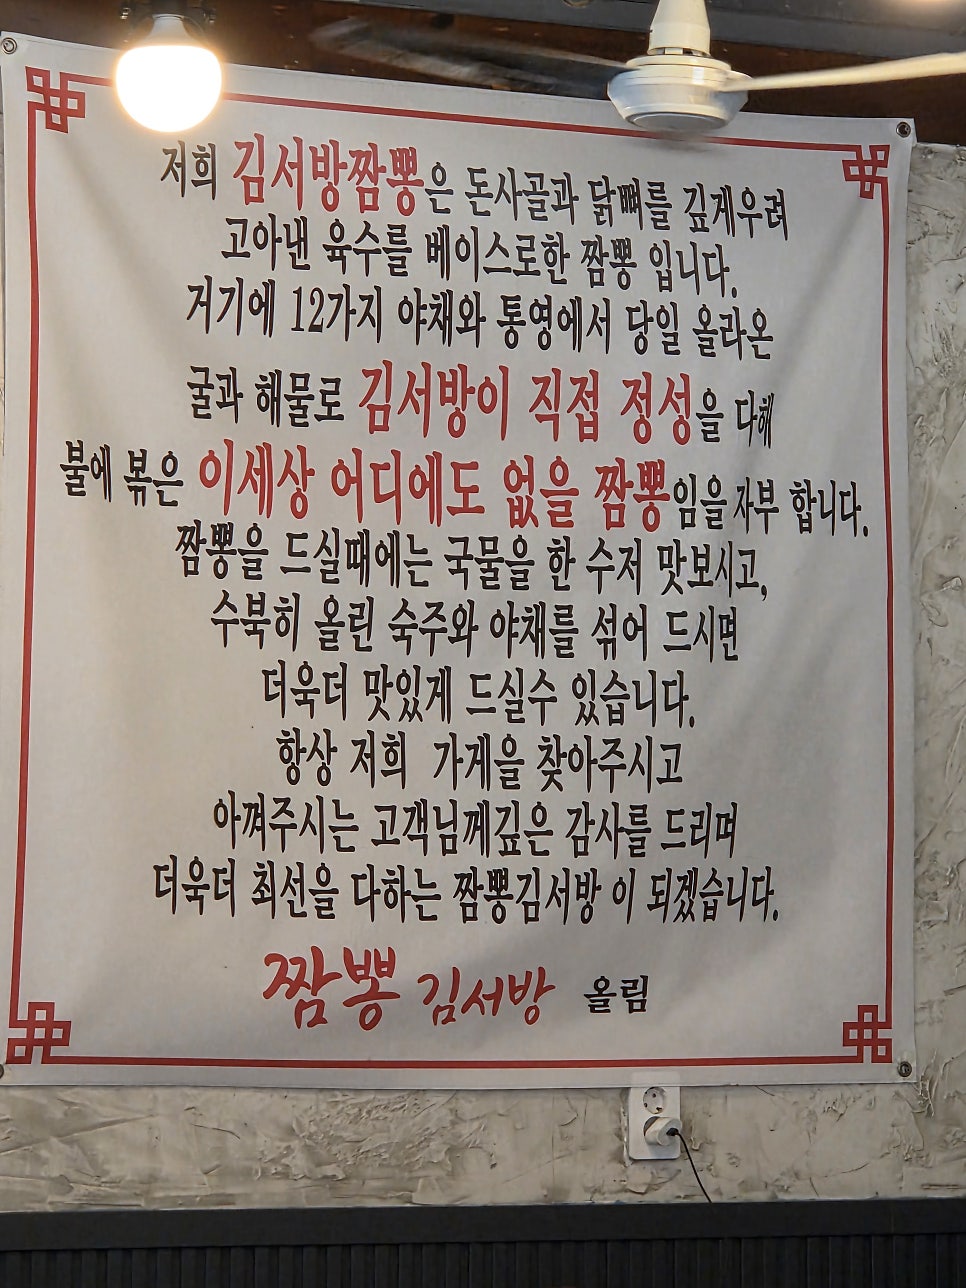 저희 김서방짬뽕은 돈사골과 닭뼈를 깊게우려
고아낸 육수를 베이스로한 짬뽕 입니다.
거기에 12가지 야채와 통영에서 당일 올라온
굴과 해물로 김서방이 직접 정성을 다해
불에 볶은 이세상 어디에도 없을 짬뽕임을 자부 합니다.
짬뽕을 드실때에는 국물을 한 수저 맛보시고,
수북히 올린 숙주와 야채를 섞어 드시면
더욱더 맛있게 드실수 있습니다.
항상 저희 가게을 찾아주시고
아껴주시는 고객님께깊은 감사를 드리며
더욱더 최선을 다하는 짬뽕김서방 이 되겠습니다.
짬뽕 김서방 올림